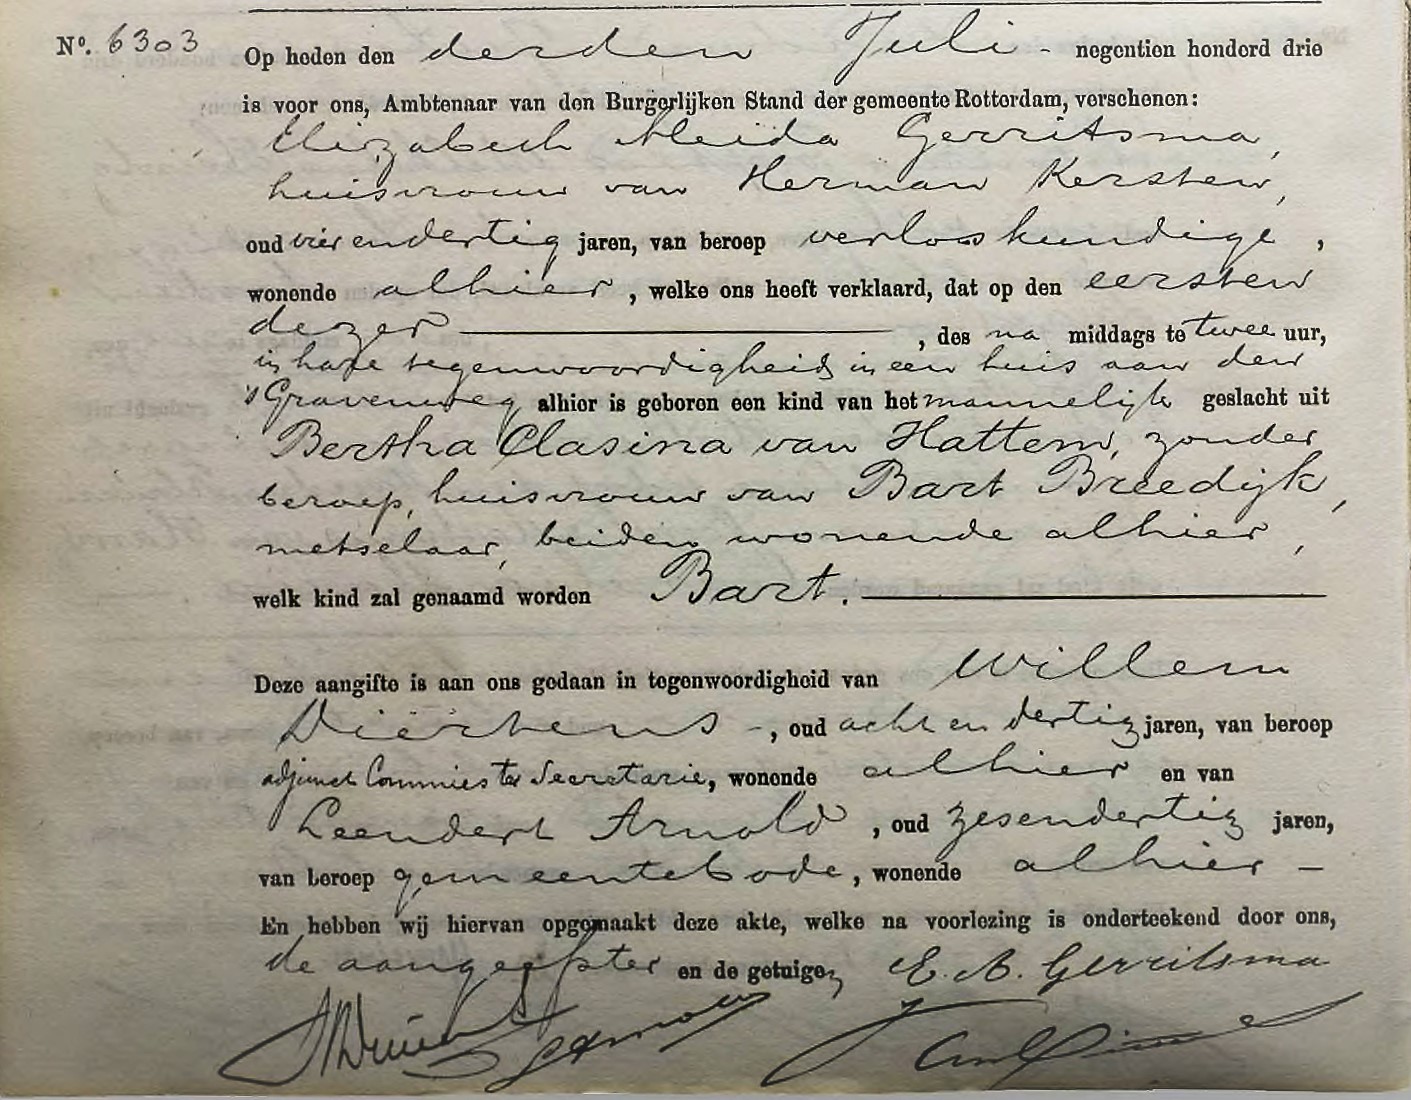 Nº. 6303 Op heden den derden Juli - negentien honderd drie
is voor ons, Ambtenaar van den Burgerlijken Stand der gemeente Rotterdam, verschenen:
Elizabeth Aleida Gerritsma,
huisvrouw van Herman Kersten,
oud vier en dertig jaren, van beroep verloskundige,
wonende alhier, welke ons heeft verklaard, dat op den eersten
dezer, des na middags te twee uur,
in hare tegenwoordigheid in een huis aan den
's Gravenweg alhier is geboren een kind van het mannelijk geslacht uit
Bertha Clasina van Hattem, zonder
beroep, huisvrouw van Bart Breedijk,
metselaar, beiden wonende alhier,
welk kind zal genaamd worden Bart.
Deze aangifte is aan ons gedaan in tegenwoordigheid van Willem
-, oud acht en dertig jaren, van beroep
adjunct Commies ter Secretarie, wonende alhier en van
Leendert Arnold, oud zesendertig jaren,
van beroep gemeentebode, wonende alhier -
En hebben wij hiervan opgemaakt deze akte, welke na voorlezing is onderteekend door ons,
de aangeefster en de getuigen E. A. Gerritsma